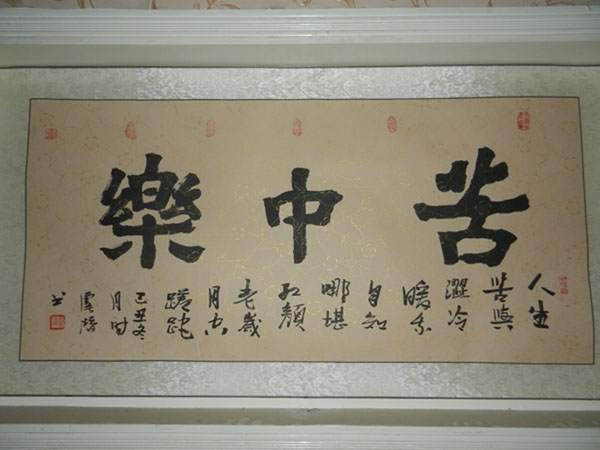 苦中樂
人生
苦與
澀冷
暖
自知
哪堪
红顏
老歲
月空
蹉跎
己丑冬
月
书